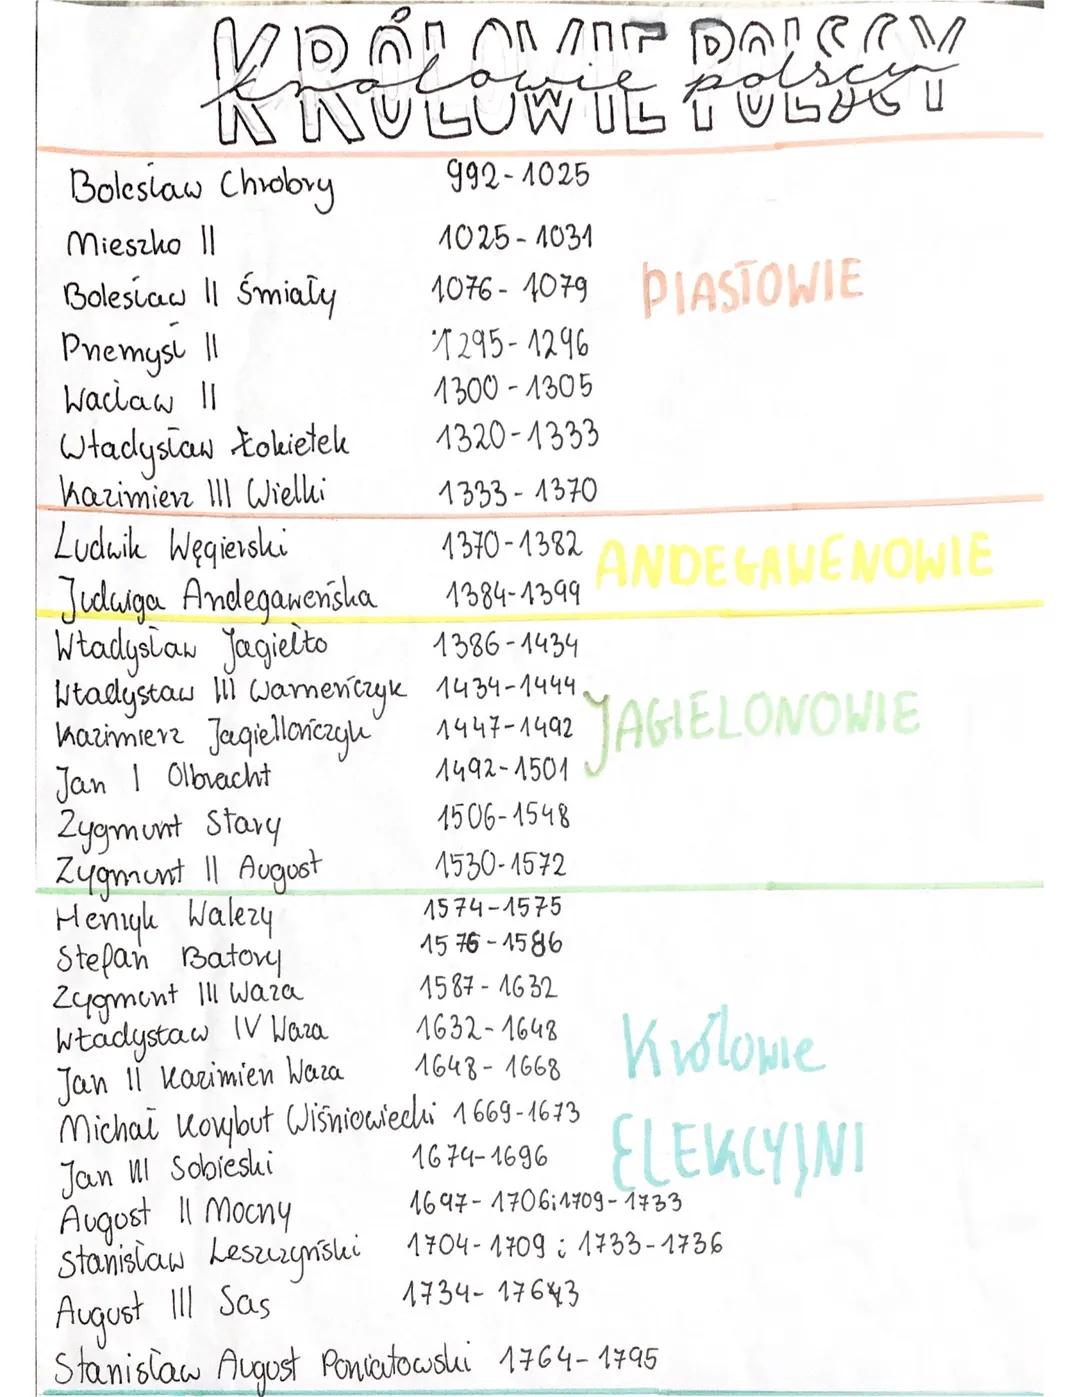 KRÓLOWIE POLSCY
królowie polscy
Bolesław Chrobry 992-1025
Mieszko II 1025-1031
Bolesław II Śmiały 1076-1079
PIASTOWIE
Przemysł II 1295-1296
Wacław II 1300-1305
Władysław Łokietek 1320-1333
Kazimierz III Wielki 1333-1370
Ludwik Węgierski 1370-1382
ANDEGAWENOWIE
Jadwiga Andegaweńska 1384-1399
Władysław Jagiełło 1386-1434
Władysław III Warneńczyk 1434-1444
JAGIELONOWIE
Kazimierz Jagiellończyk 1447-1492
Jan I Olbracht 1492-1501
Zygmunt Stary 1506-1548
Zygmunt II August 1530-1572
Henryk Walezy 1574-1575
Stefan Batory 1576-1586
Zygmunt III Waza 1587-1632
Władysław IV Waza 1632-1648
Królowie
Jan II Kazimierz Waza 1648-1668
Michał Korybut Wiśniowiecki 1669-1673
ELEKCYJNI
Jan III Sobieski 1674-1696
August II Mocny 1697-1706i1709-1733
Stanisław Leszczyński 1704-1709 i 1733-1736
August III Sas 1734-1763
Stanisław August Poniatowski 1764-1795